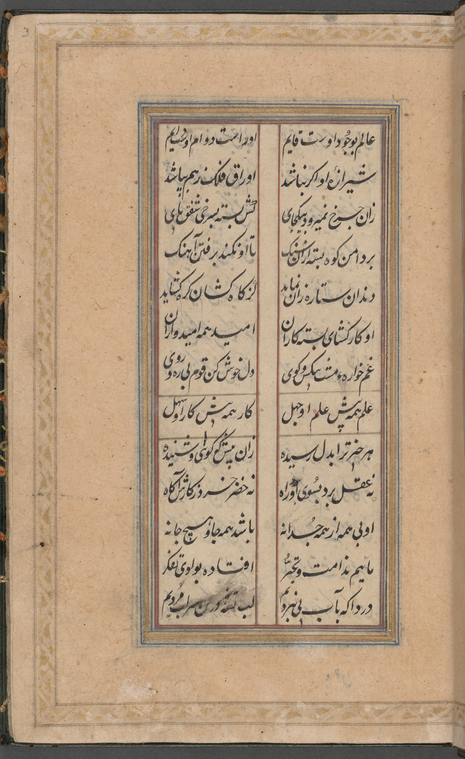 عالم بوجود اوست قایم اوراست دوام او دایم
شیرازه او اکر نباشد اوراق فلک زهم بپاشد
زان چرخ نمیرود بهر جای کش بسته بسرخی شفق پای
بردامن کوه بسته زان سنک تا او نکند برفتن آهنک
دندان ستاره زان نماید کز کاه کشان کره کشاید
او کارکشای بسته کاران امید همه امیدواران
غم خواره مفلس کوی دل خوش کن قوم بی ره و روی
علم همه پیش علم او جهل کار همه پیش کار او سهل
هر چیز ترا بدل رسیده زان پیش که کوی و شنیده
نه عقل برد بسوی او راه نه خضر خرد ز کارش آکاه
او بی همه از همه جدا نه باشد همه جا و هیچ جا نه
ماییم ندامت و تحیر افتاده بوادی تفکر
دردا که بآب پی نبردیم لب تشنه در سراب مردیم